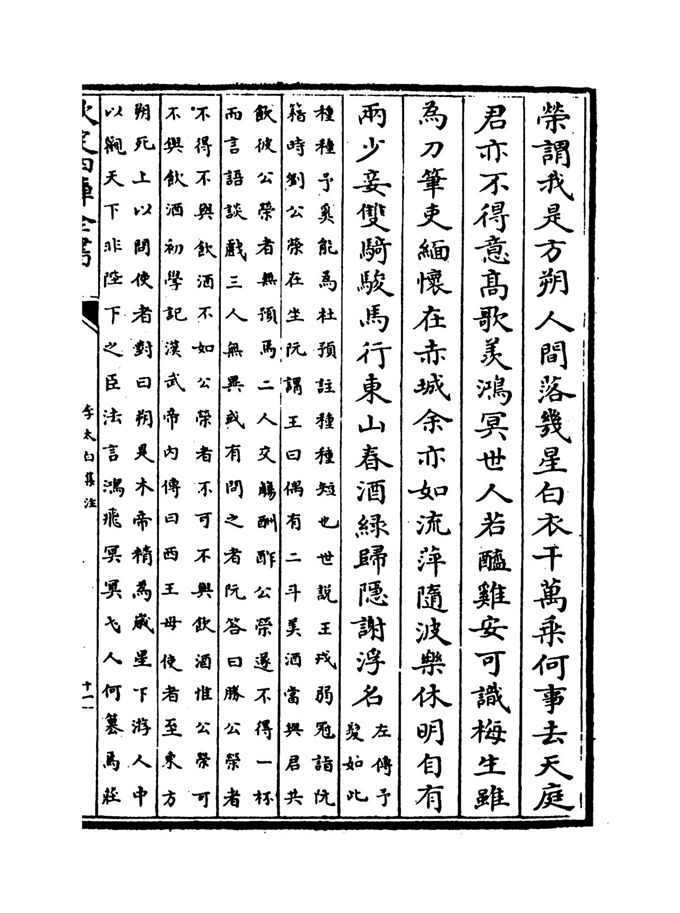 榮謂我是方朔人間落幾星白衣干萬乘何事去天庭
君亦不得意髙歌羨鴻冥世人若醯雞安可識梅生雖
為刀筆吏緬懷在赤城余亦如流萍隨波樂休明自有
兩少妾雙騎駿馬行東山春酒緑歸隱謝浮名
左傳予
髮如此
種種予奚能為杜預註種種短也世説王戎弱冠詣阮
籍時劉公榮在坐阮謂王曰偶有二斗美酒當與君共
飲彼公榮者無預焉二人交觴酬酢公榮遂不得一杯
而言語談戲三人無異或有問之者阮答曰勝公榮者
不得不與飲酒不如公榮者不可不與飲酒惟公榮可
不與飲酒初學記漢武帝内傳曰西王母使者至東方
朔死上以問使者對曰朔是木帝精為嵗星下游人中
以觀天下非陛下之臣法言鴻飛冥冥弋人何篡焉莊
欽定四庫全書
李太白集注
十一